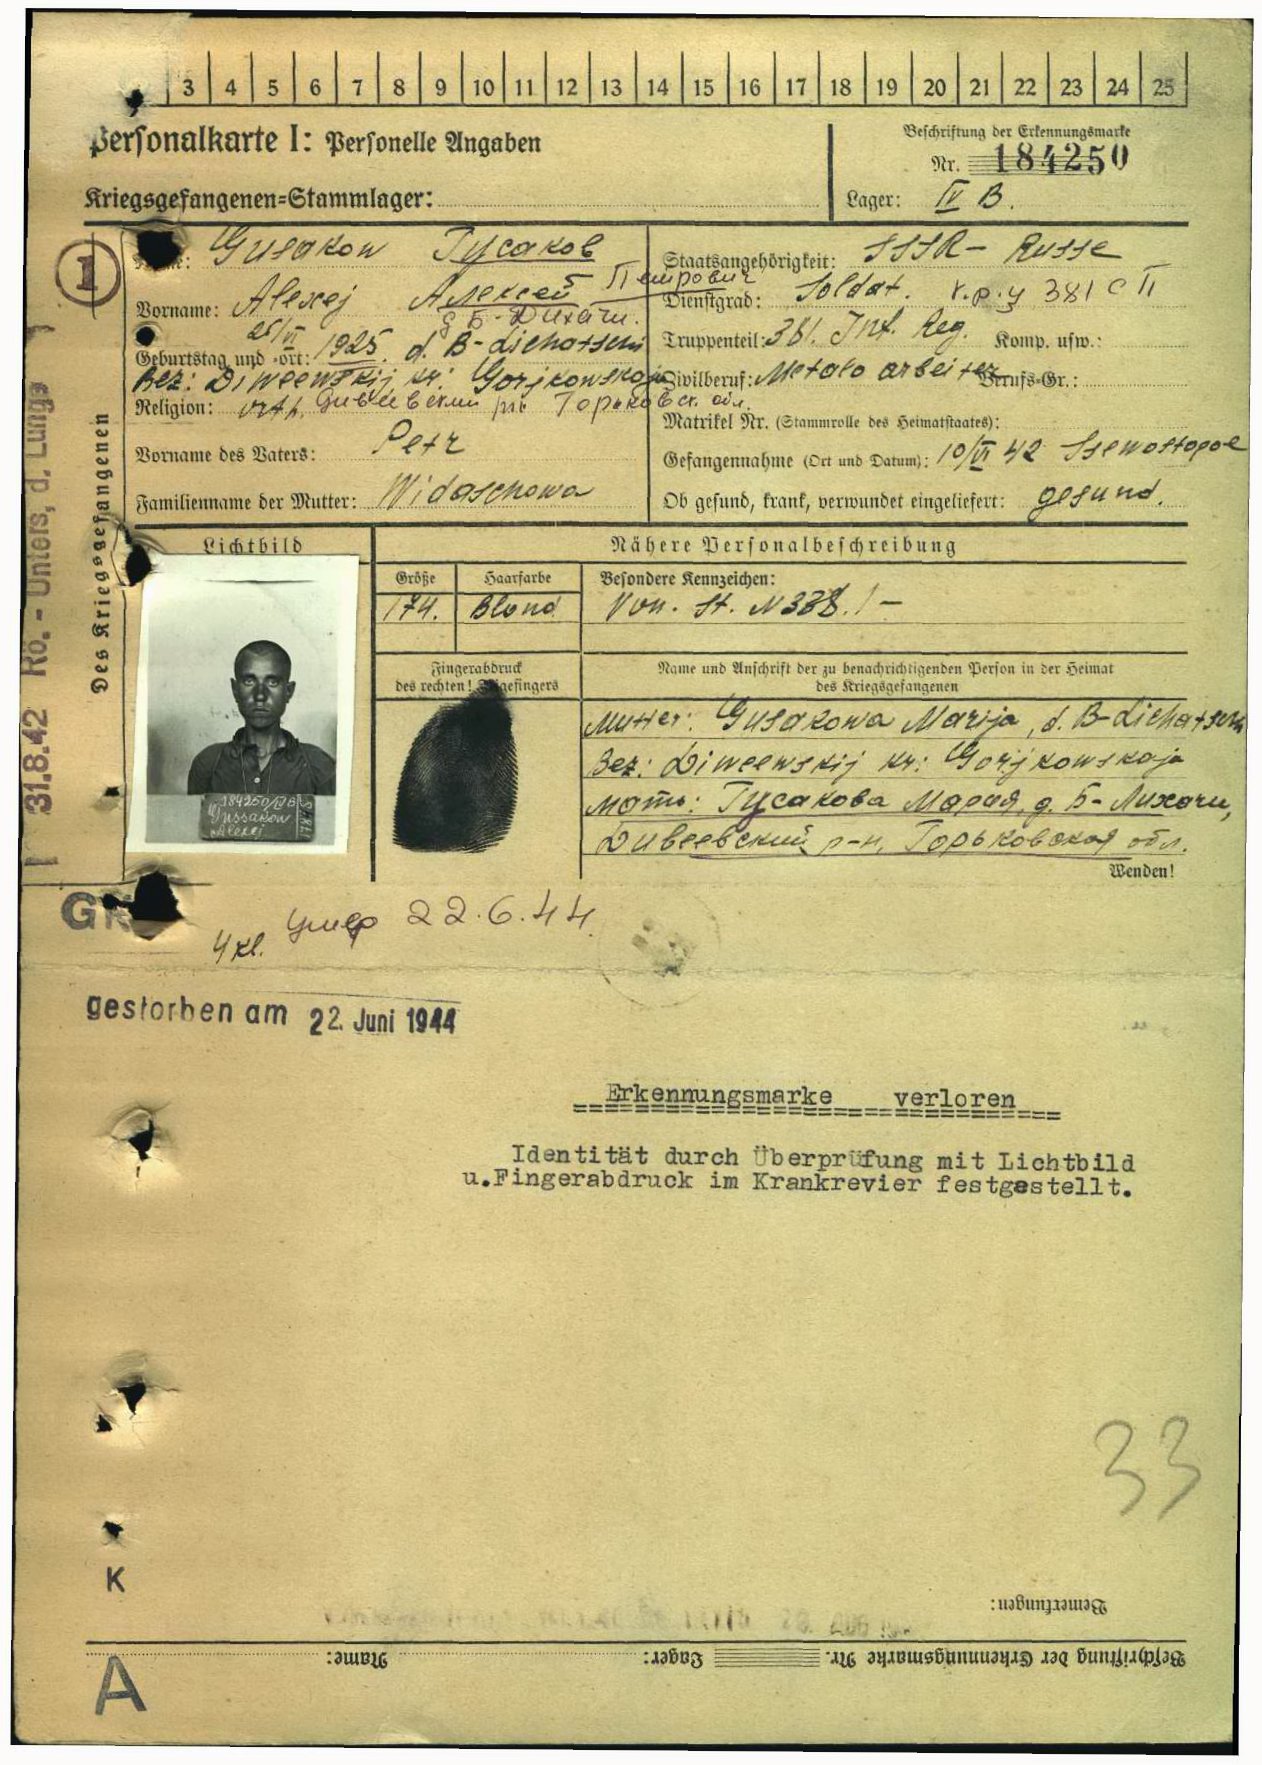 3 4 5 6 7 8 9 10 11 12 13 14 15 16 17 18 19 20 21 22 23 24 25
Personalkarte I: Personelle Angaben
Beschriftung der Erkennungsmarke
Nr. 184250
Kriegsgefangenen-Stammlager:
Lager: IV B.
1
Des Kriegsgefangenen
31.8.42 Rö.-Unters. d. Lunge
Gusakow Гусаков
Vorname: Alexej Алексей Петрович
д Б-Лихачи.
Geburtstag und -ort: 25/VI 1925. d. B-Lichatschi
Bez: Diweewskij kr: Gorjkowskaja
Religion: orth. Дивеевский рн Горьковск. обл.
Vorname des Vaters: Petr
Familienname der Mutter: Widaschowa
Staatsangehörigkeit: SSSR - Russe
Dienstgrad: Soldat.
Truppenteil: 381. Inf. Reg. Komp. usw.:
381 С П
Zivilberuf: Metalo arbeiter Berufs-Gr.:
Matrikel Nr. (Stammrolle des Heimatstaates):
Gefangennahme (Ort und Datum): 10/VI 42 Ssewostopol
Ob gesund, krank, verwundet eingeliefert: gesund.
Lichtbild
184250/IVB
Gussakow
Alexej
Nähere Personalbeschreibung
Größe Haarfarbe Besondere Kennzeichen:
174. Blond Von. St. N 338. / -
Fingerabdruck
des rechten! Zeigefingers
Name und Anschrift der zu benachrichtigenden Person in der Heimat
des Kriegsgefangenen
Mutter: Gusakowa Marija, d. B-Lichatschi
Bez: Diweewskij kr: Gorjkowskaja
мать: Гусакова Мария, д. Б-Лихачи,
Дивеевский р-н, Горьковская обл.
Wenden!
умер 22.6.44.
4 kl.
gestorben am 22. Juni 1944
Erkennungsmarke verloren
Identität durch Überprüfung mit Lichtbild
u.Fingerabdruck im Krankrevier festgestellt.
33
K
Bemerkungen:
Beschriftung der Erkennungsmarke Nr. Lager: Name:
A